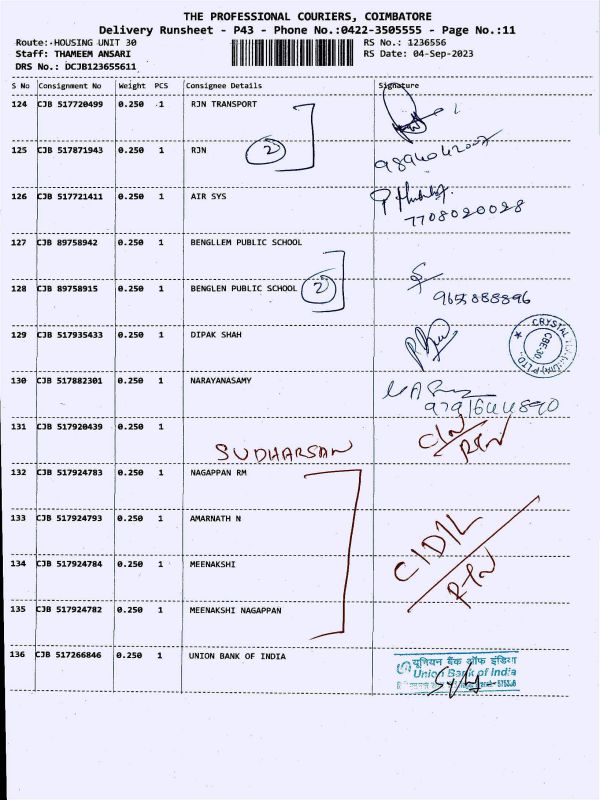 THE PROFESSIONAL COURIERS, COIMBATORE
Delivery Runsheet - P43 - Phone No.:0422-3505555 - Page No.:11
Route: HOUSING UNIT 30
RS No.: 1236556
Staff: THAMEEM ANSARI
RS Date: 04-Sep-2023
DRS No.: DCJB123655611
S No Consignment No Weight PCS Consignee Details Signature
124 CJB 517720499 0.250 1 RJN TRANSPORT
125 CJB 517871943 0.250 1 RJN 2
126 CJB 517721411 0.250 1 AIR SYS
7708020028
127 CJB 89758942 0.250 1 BENGLLEM PUBLIC SCHOOL
128 CJB 89758915 0.250 1 BENGLEN PUBLIC SCHOOL 2
9655888896
129 CJB 517935433 0.250 1 DIPAK SHAH
CRYSTAL
CBE-30
130 CJB 517882301 0.250 1 NARAYANASAMY
9791644890
131 CJB 517920439 0.250 1
SUDHARSAN
132 CJB 517924783 0.250 1 NAGAPPAN RM
133 CJB 517924793 0.250 1 AMARNATH N
C/D/L
134 CJB 517924784 0.250 1 MEENAKSHI
135 CJB 517924782 0.250 1 MEENAKSHI NAGAPPAN
136 CJB 517266846 0.250 1 UNION BANK OF INDIA
यूनियन बैंक ऑफ इंडिया
Union Bank of India